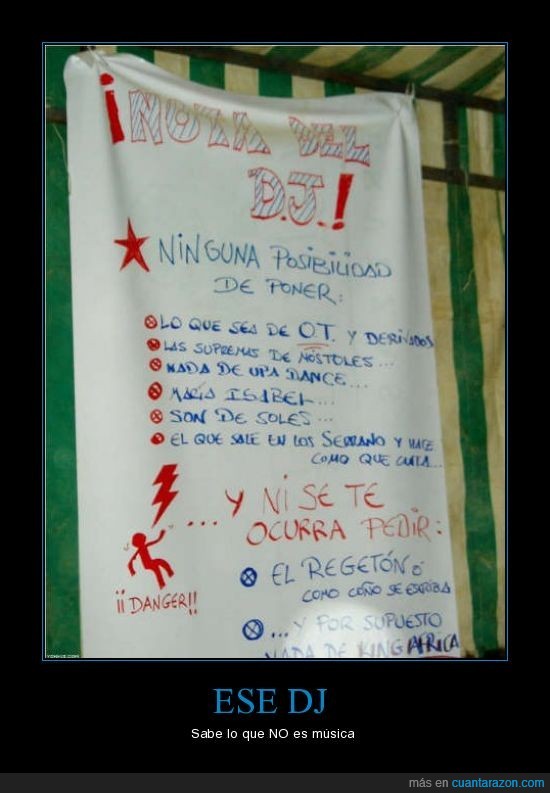 ¡NOTA DEL
D.J.!
NINGUNA POSIBILIDAD
DE PONER:
LO QUE SEA DE O.T. Y DERIVADOS
LAS SUPREMAS DE MÓSTOLES...
NADA DE UPA DANCE...
MARÍA ISABEL...
SON DE SOLES...
EL QUE SALE EN LOS SERRANO Y HACE
COMO QUE CANTA...
... Y NI SE TE
OCURRA PEDIR:
EL REGETÓN Ó
COMO COÑO SE ESCRIBA
¡¡DANGER!!
... Y POR SUPUESTO
NADA DE KING AFRICA
YONKIS.COM
ESE DJ
Sabe lo que NO es música
más en cuantarazon.com